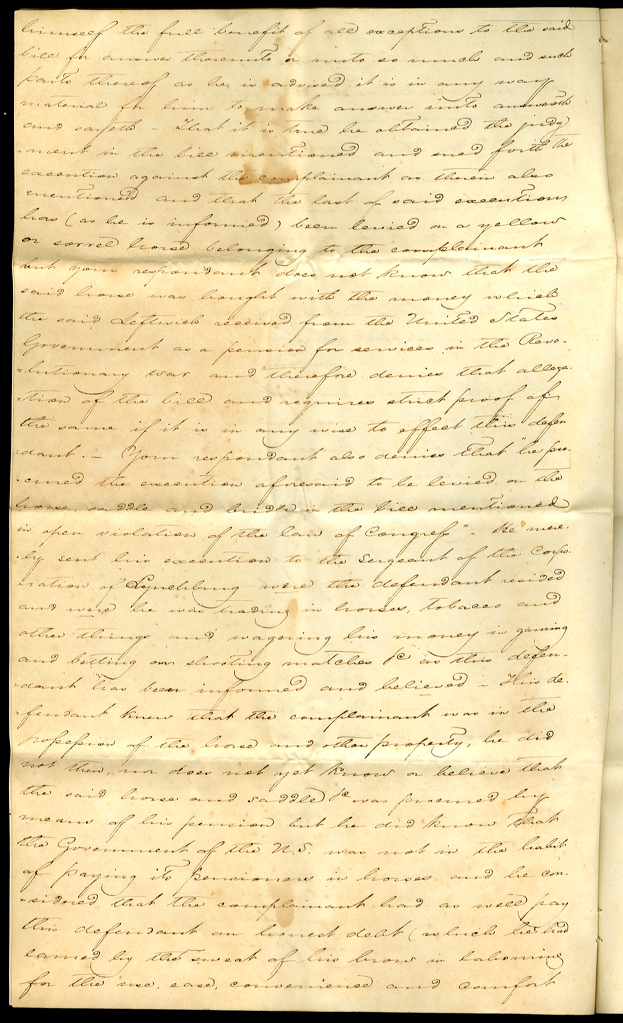 himself the full benefit of all exceptions to the said
bill for answer thereunto or unto so much and such
parts thereof as he is advised it is in any way
material for him to make answer unto answereth
and sayeth - That it is true he obtained the judg
-ment in the bill mentioned and sued forth the
execution against the complainant as therein also
mentioned and that the last of said executions
has (as he is informed) been levied on a yellow
or sorrel horse belonging to the complainant
but your respondant does not know that the
said horse was bought with the money which
the said Leftwich received from the United States
Government as a pension for services in the Revo-
-lutionary war and therefore denies that allega-
-tion of the bill and requires strict proof of
the same if it is in any wise to effect this defen
-dant. - Your respondant also denies that "he pro
-cured the execution aforesaid to be levied on the
horse, saddle and bridle in the bill mentioned
in open violation of the law of Congress" - He mere-
-ly sent his execution to the Sergeant of the Corpo
-ration of Lynchburg were the defendant resided
and were he was trading in horses, tobacco and
other things and wagering his money in gaming
and betting on shooting matches &c as this defen-
-dant has been informed and believed - This de-
-fendant knew that the complainant was in the
possession of the horse and other property, he did
not then, nor does not yet know or believe that
the said horse and saddle &c was procured by
means of his pension but he did know that
the Government of the U.S. was not in the habit
of paying its pensioners in horses and he con
-sidered that the complainant had as well pay
this defendant an honest debt (which he had
earned by the sweat of his brow in labouring
for the use, ease, convenience and comfort